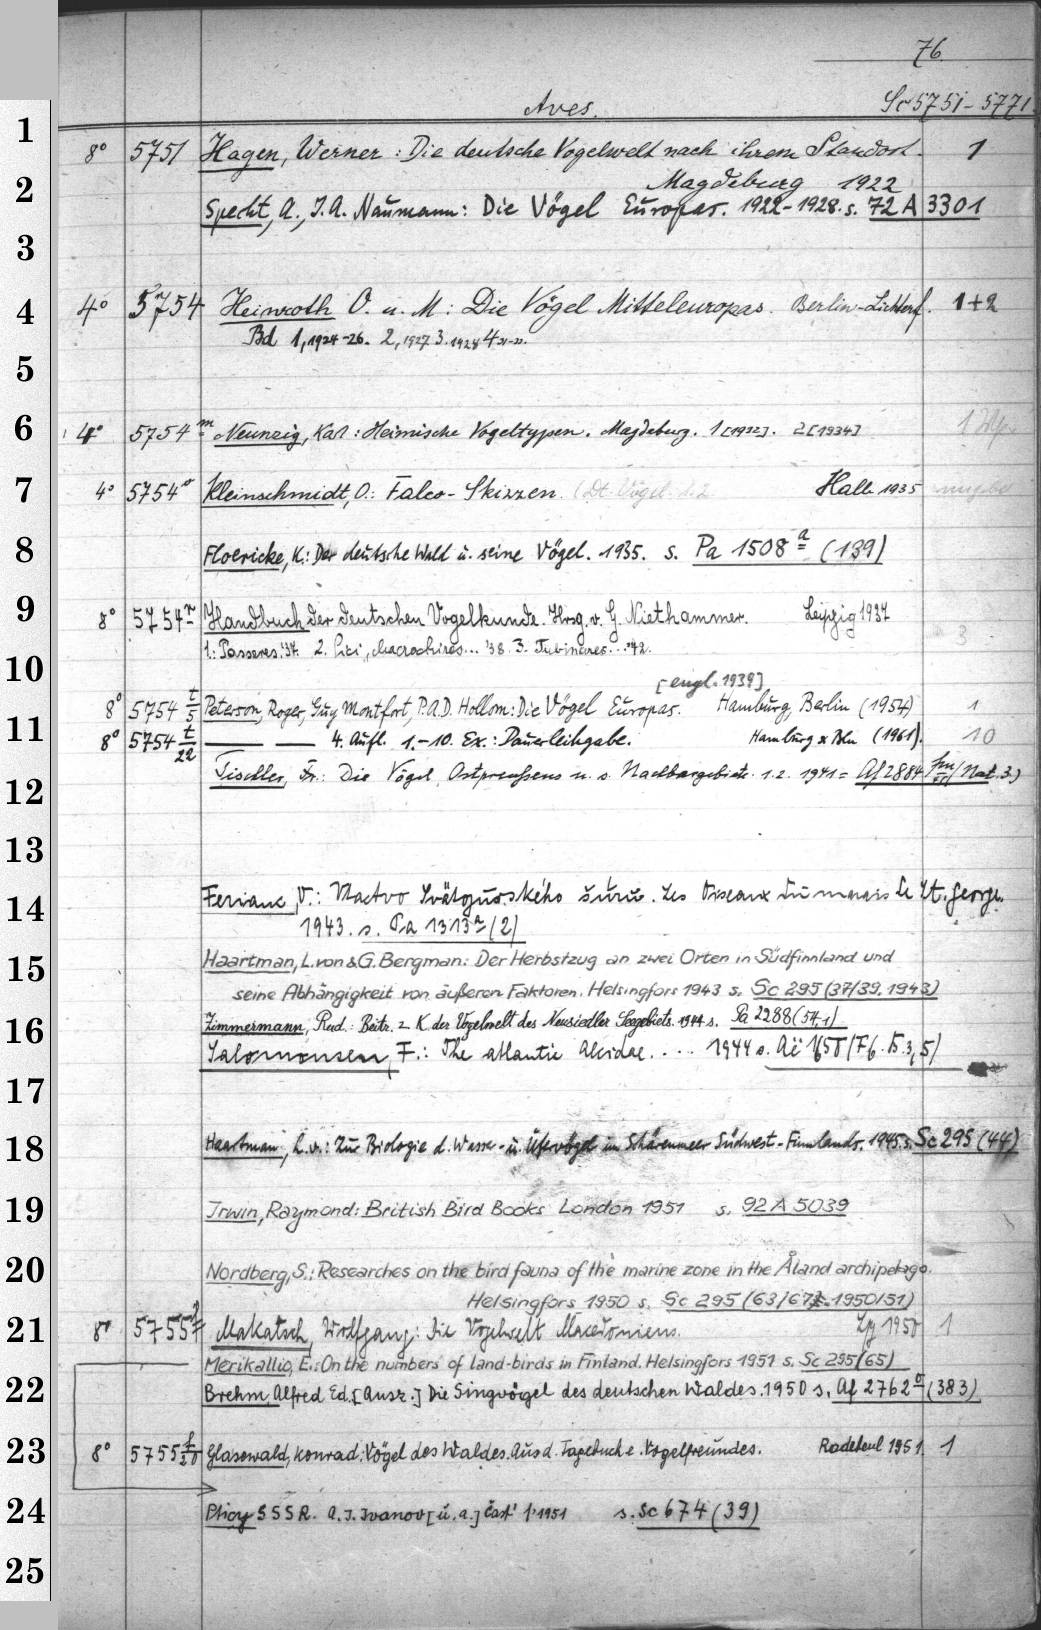 76
Aves. Sc 5751-5771
1
8° 5751 Hagen, Werner: Die deutsche Vogelwelt nach ihrem Standort. 1
Magdeburg 1922
2
Specht, A., J. A. Naumann: Die Vögel Europas. 1922-1928. s. 72 A 3301
3
4
4° 5754 Heinroth O. u. M: Die Vögel Mitteleuropas. Berlin-Lichterf. 1+2
Bd 1, 1924-26. 2, 1927 3. 1928 4
5
6
4° 5754 m Neunzig, Karl: Heimische Vogeltypen. Magdeburg. 1 [1932]. 2 [1934]
7
4° 5754 Kleinschmidt, O.: Falco-Skizzen. (Dt. Vögel Halle 1935
8
Floericke, K.: Der deutsche Wald u. seine Vögel. 1935. s. Pa 1508 a (139)
9
8° 5754 r Handbuch der deutschen Vogelkunde. Hrsg. v. G. Niethammer. Leipzig 1937
1.: Passeres. '37. 2. Pici, Macrochires... '38. 3. Tubinares... '42. 3
10
[engl. 1939]
8° 5754 t/5 Peterson, Roger, Guy Montfort, P.A.D. Hollom: Die Vögel Europas. Hamburg, Berlin (1954) 1
11
8° 5754 t/22 — — 4. Aufl. 1.-10. Ex.: Dauerleihgabe. Hamburg & Bln (1961). 10
Tischler, Fr.: Die Vögel Ostpreußens u. s. Nachbargebiete. 1.2. 1941 = Af 2884 (Nat. 3)
12
13
14
Ferianc, O.: Vtactvo Svätojurského šúru. Les Oiseaux du marais de St. George.
1943. s. Pa 1313 a (2)
15
Haartman, L. von & G. Bergman: Der Herbstzug an zwei Orten in Südfinnland und
seine Abhängigkeit von äußeren Faktoren. Helsingfors 1943 s. Sc 295 (37/39. 1943)
16
Zimmermann, Rud.: Beitr. z. K. der Vogelwelt des Neusiedler Seegebiets. 1944 s. Pa 2288 (54,1)
Salomonsen, F.: The atlantic Alcidae. . . . . 1944 s.
17
18
Haartman, L. v.: Zur Biologie d. Wasser- u. Ufervögel im Schärenmeer Südwest-Finnlands. 1945. s. Sc 295 (44)
19
Irwin, Raymond: British Bird Books London 1951 s. 92 A 5039
20
Nordberg, S.: Researches on the bird fauna of the marine zone in the Åland archipelago.
Helsingfors 1950 s. Sc 295 (63/67. 1950/51)
21
8° 5755 Makatsch, Wolfgang: Die Vogelwelt Macedoniens. Lpg 1950 1
Merikallio, E.: On the numbers of land-birds in Finland. Helsingfors 1951 s. Sc 295 (65)
22
Brehm, Alfred Ed. [Ausz.] Die Singvögel des deutschen Waldes. 1950 s. Af 2762 (383)
23
8° 5755 f/20 Glasewald, Konrad: Vögel des Waldes. Aus d. Tagebuch e. Vogelfreundes. Radebeul 1951 1
24
Pticy SSSR. A. I. Ivanov [u. a.] Čast' 1. 1951 s. Sc 674 (39)
25